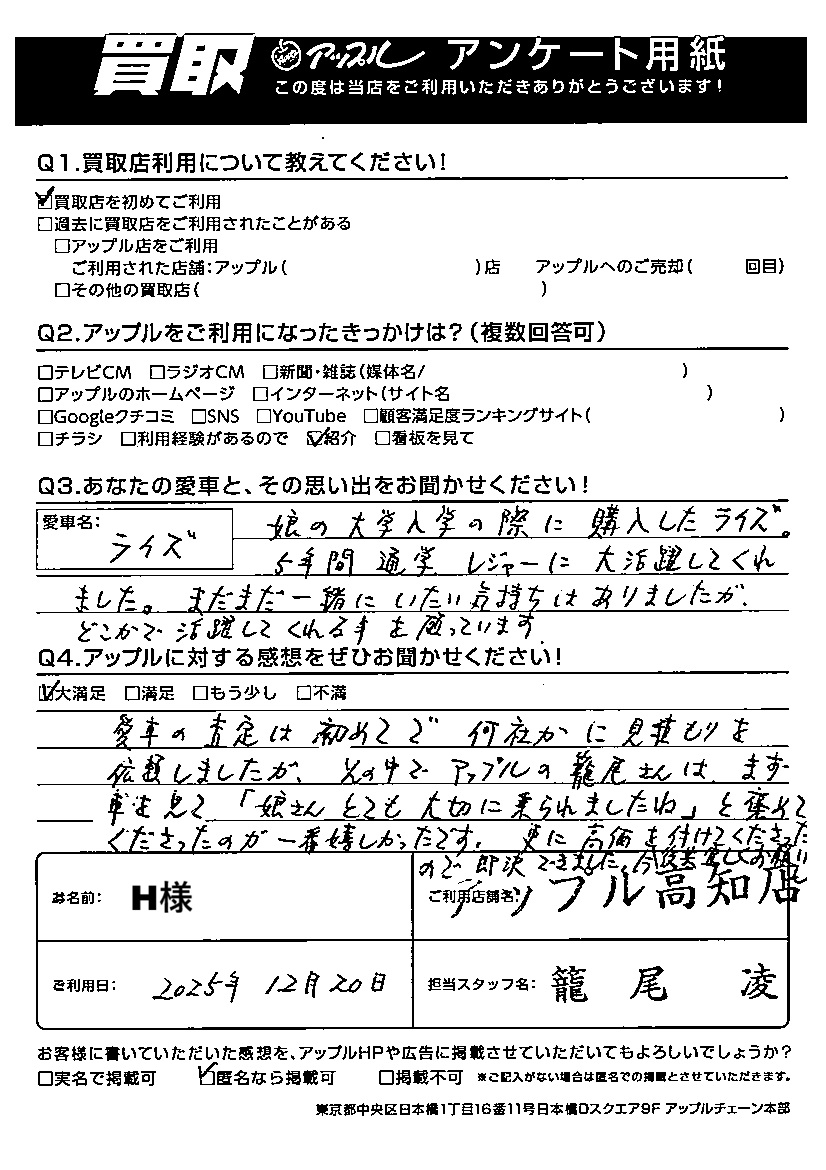 買取 アップル アンケート用紙
この度は当店をご利用いただきありがとうございます!
Q1.買取店利用について教えてください!
☑買取店を初めてご利用
□過去に買取店をご利用されたことがある
□アップル店をご利用
ご利用された店舗:アップル( )店 アップルへのご売却( 回目)
□その他の買取店( )
Q2.アップルをご利用になったきっかけは?(複数回答可)
□テレビCM □ラジオCM □新聞・雑誌(媒体名/ )
□アップルのホームページ □インターネット(サイト名 )
□Googleクチコミ □SNS □YouTube □顧客満足度ランキングサイト( )
□チラシ □利用経験があるので ☑紹介 □看板を見て
Q3.あなたの愛車と、その思い出をお聞かせください!
愛車名: ライズ
娘の大学入学の際に購入したライズ。
5年間通学 レジャーに大活躍してくれ
ました。まだまだ一緒にいたい気持ちはありましたが、
どこかで活躍してくれる事を願っています。
Q4.アップルに対する感想をぜひお聞かせください!
☑大満足 □満足 □もう少し □不満
愛車の査定は初めてで 何社かに見積もりを
依頼しましたが、その中でアップルの籠尾さんは、まず
車を見て「娘さんとても大切に乗られましたね」と褒めて
くださったのが一番嬉しかったです。更に高価を付けてくださった
ので即決できました。
お名前: H様
ご利用店舗名: アップル高知店
ご利用日: 2025年 12月 20日
担当スタッフ名: 籠尾 凌
お客様に書いていただいた感想を、アップルHPや広告に掲載させていただいてもよろしいでしょうか?
□実名で掲載可 ☑匿名なら掲載可 □掲載不可 ※ご記入がない場合は匿名での掲載とさせていただきます。
東京都中央区日本橋1丁目16番11号日本橋Dスクエア9F アップルチェーン本部